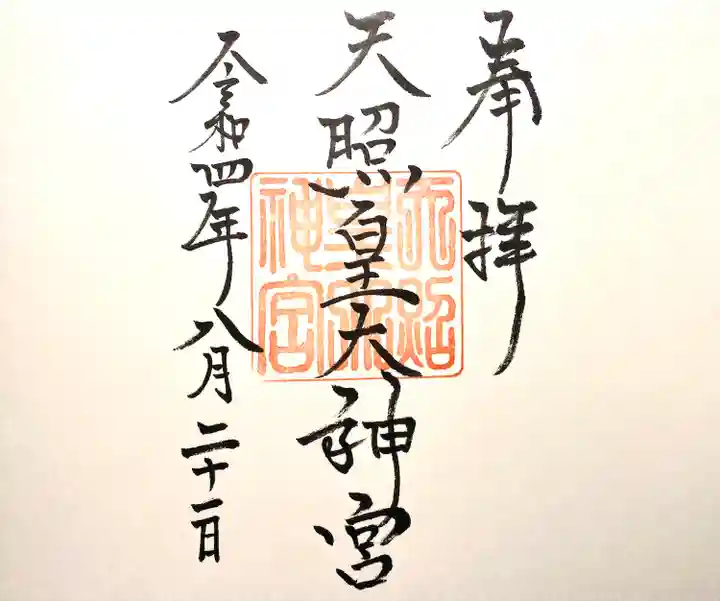 奉拝
天照皇大神宮
令和四年八月二十一日
天照
神宮